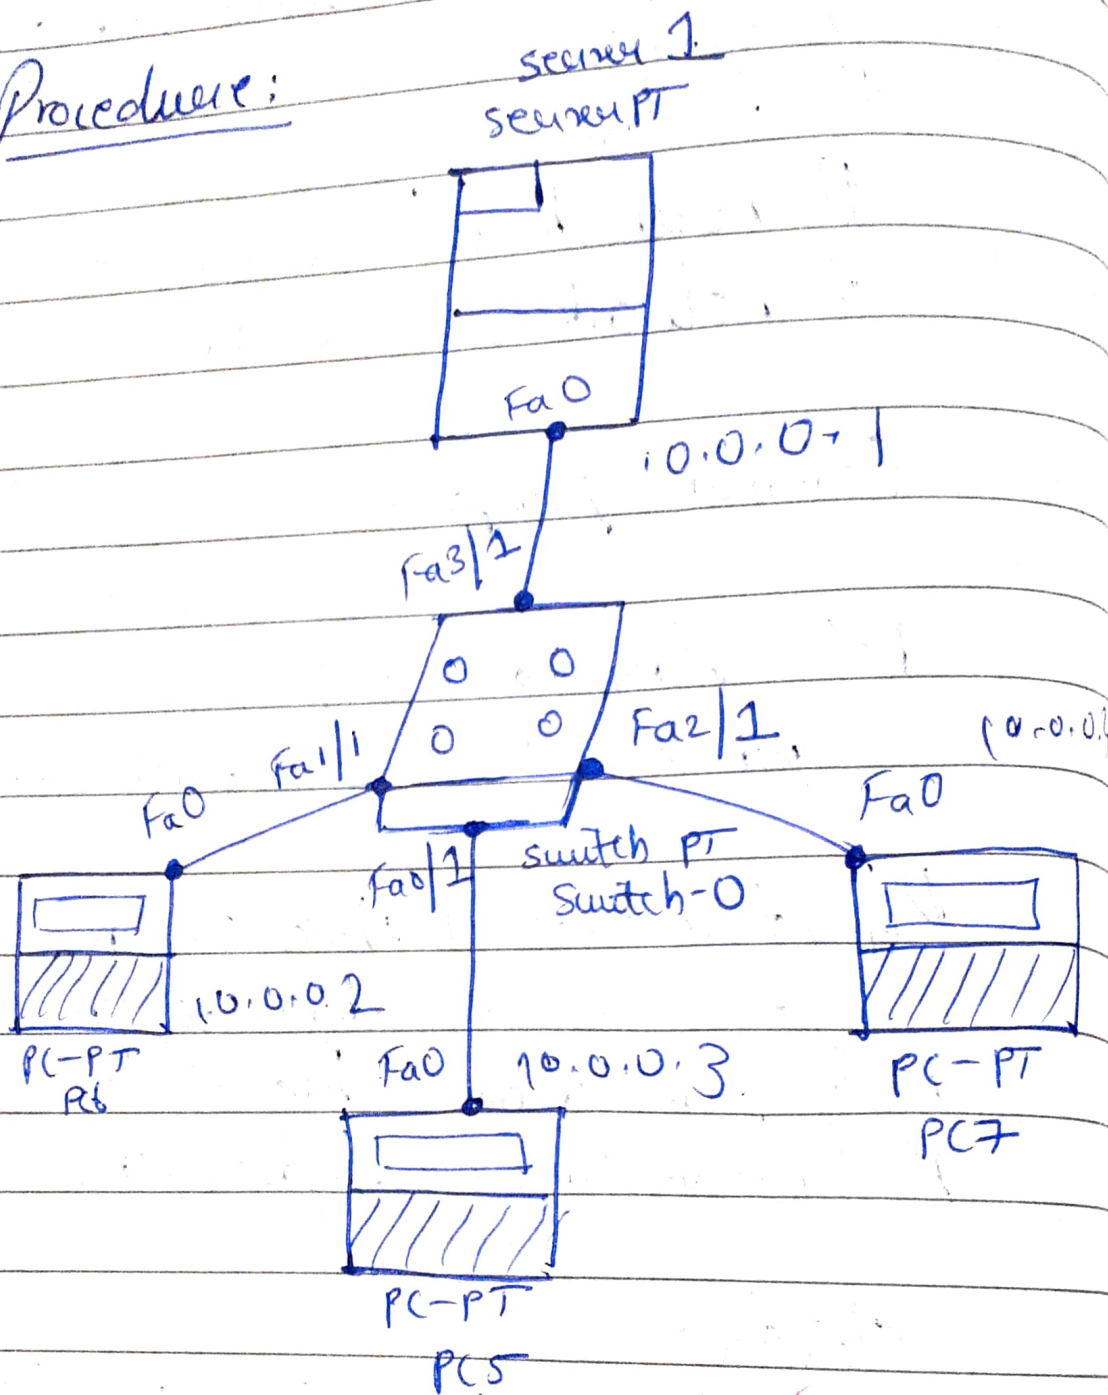 Procedure:
server 1
serverPT
Fa0
10.0.0.1
Fa3/1
Fa1/1
Fa2/1
10.0.0
Fa0
Fa0
Fa0/1
switch PT
Switch-0
10.0.0.2
PC-PT
PC6
Fa0
10.0.0.3
PC-PT
PC7
PC-PT
PC5